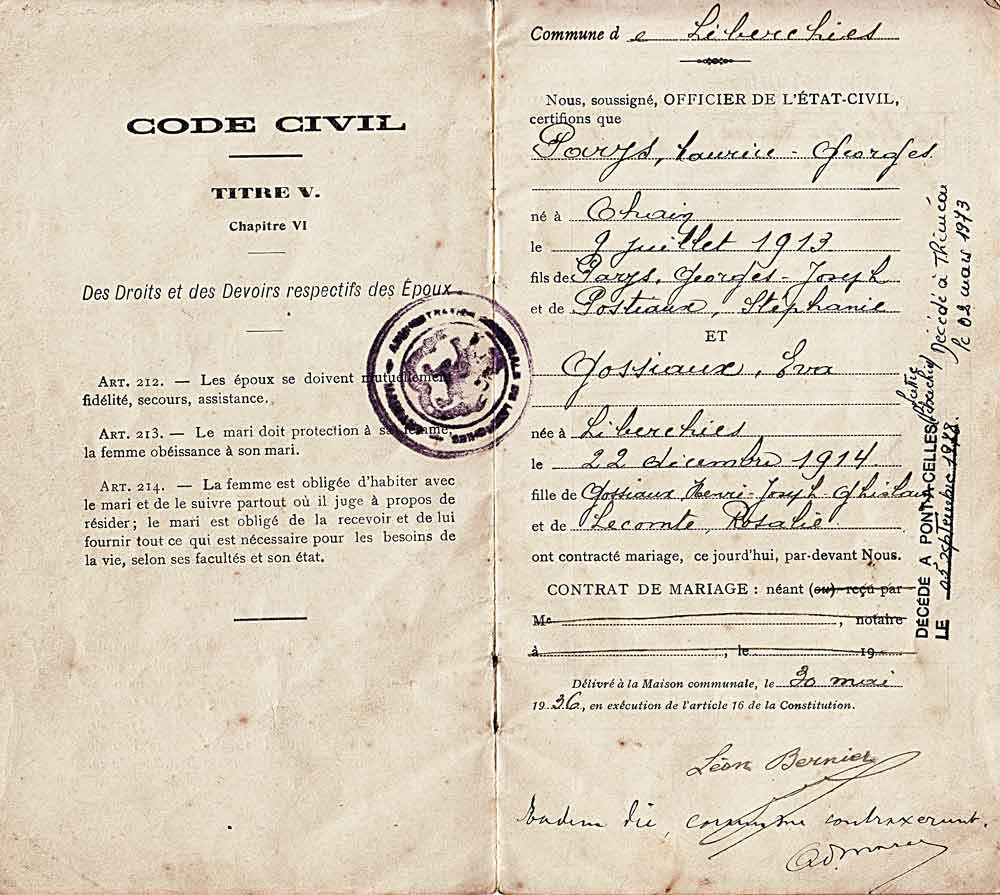 CODE CIVIL
TITRE V.
Chapitre VI
Des Droits et des Devoirs respectifs des Époux
ART. 212. — Les époux se doivent mutuellement
fidélité, secours, assistance.
ART. 213. — Le mari doit protection à sa femme,
la femme obéissance à son mari.
ART. 214. — La femme est obligée d'habiter avec
le mari et de le suivre partout où il juge à propos de
résider ; le mari est obligé de la recevoir et de lui
fournir tout ce qui est nécessaire pour les besoins de
la vie, selon ses facultés et son état.
Commune de Liberchies
Nous, soussigné, OFFICIER DE L'ÉTAT-CIVIL,
certifions que
Parys, Maurice - Georges
né à Thuin
le 9 juillet 1913
fils de Parys, Georges - Joseph
et de Posteaux, Stéphanie
ET
Gossiaux, Eva
née à Liberchies
le 22 décembre 1914
fille de Gossiaux, Henri-Joseph-Ghislain
et de Lecomte, Rosalie
ont contracté mariage, ce jourd'hui, par-devant Nous.
CONTRAT DE MARIAGE : néant (ou) reçu par
Me , notaire
à , le 19
Délivré à la Maison communale, le 30 mai
1936, en exécution de l'article 16 de la Constitution.
Léon Bernier
Eadem die, contraxerunt.
Décédé à Thiméon
le 02 mars 1973
DÉCÉDÉ A PONT-A-CELLES
LE septembre